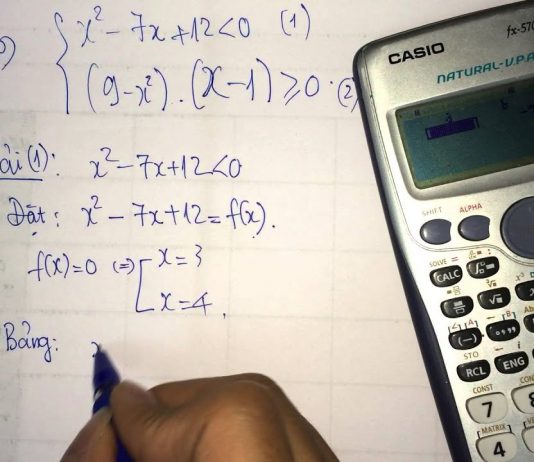 x² - 7x + 12 < 0 (1)
(9 - x²) . (x - 1) ≥ 0 . (2)
(1): x² - 7x + 12 < 0
Đặt : x² - 7x + 12 = f(x).
f(x) = 0 (=) [ x = 3
x = 4 .
Bảng:
CASIO
fx-570
NATURAL-V.P.A
SHIFT ALPHA
SOLVE =
CALC
STO
RCL ENG
CONST
7
MATRIX
4